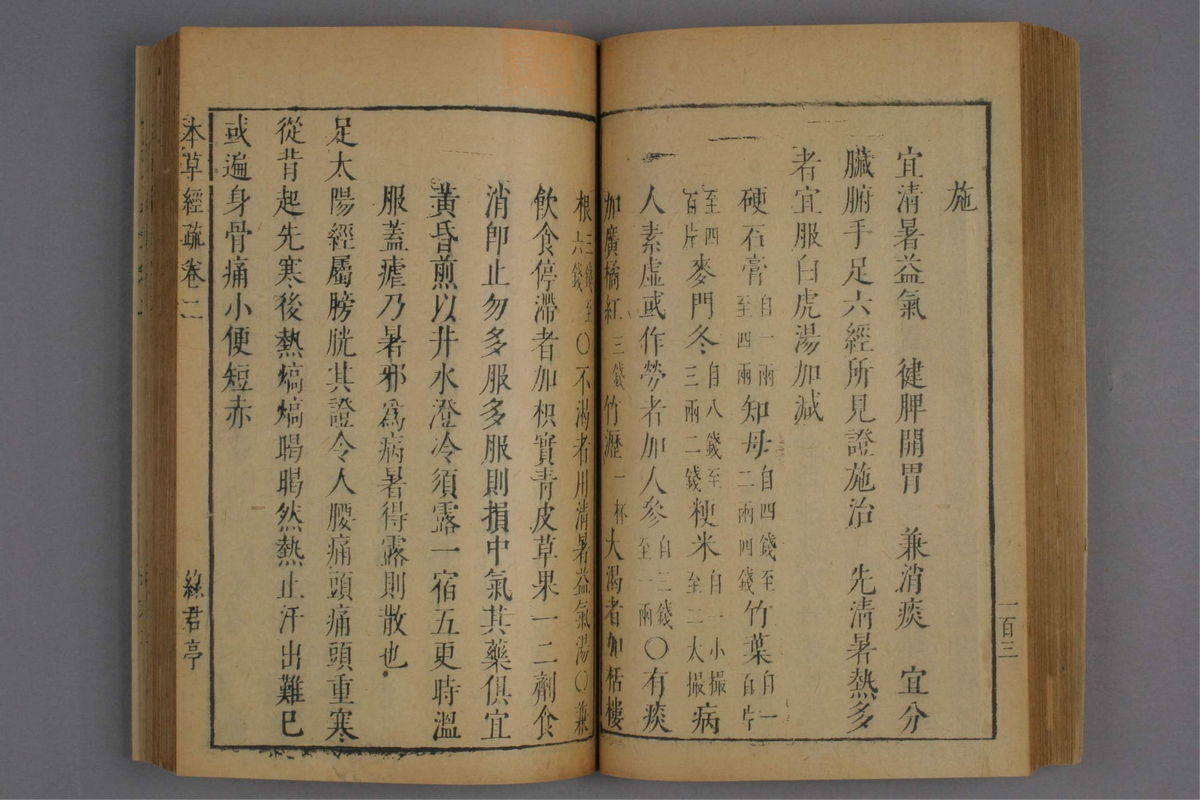 施
宜清暑益氣　健脾開胃　兼消痰　宜分
臟腑手足六經所見證施治　先清暑熱多
者宜服白虎湯加減
硬石膏自一兩至四兩知母自四錢至二兩四錢竹葉自一百片
至四百片麥門冬自八錢至三兩二錢粳米自一小撮至二大撮病
人素虛或作勞者加人參自三錢至一兩〇有痰
加廣橘紅三錢竹瀝一杯大渴者加栝樓
根三錢至六錢〇不渴者用清暑益氣湯〇兼
飲食停滯者加枳實青皮草果一二劑食
消即止勿多服多服則損中氣其藥俱宜
黃昏煎以井水澄冷須露一宿五更時溫
服蓋瘧乃暑邪爲病暑得露則散也
足太陽經屬膀胱其證令人腰痛頭痛頭重寒
從背起先寒後熱熇熇暍暍然熱止汗出難已
或遍身骨痛小便短赤
本草經疏卷二
綠君亭
一百三